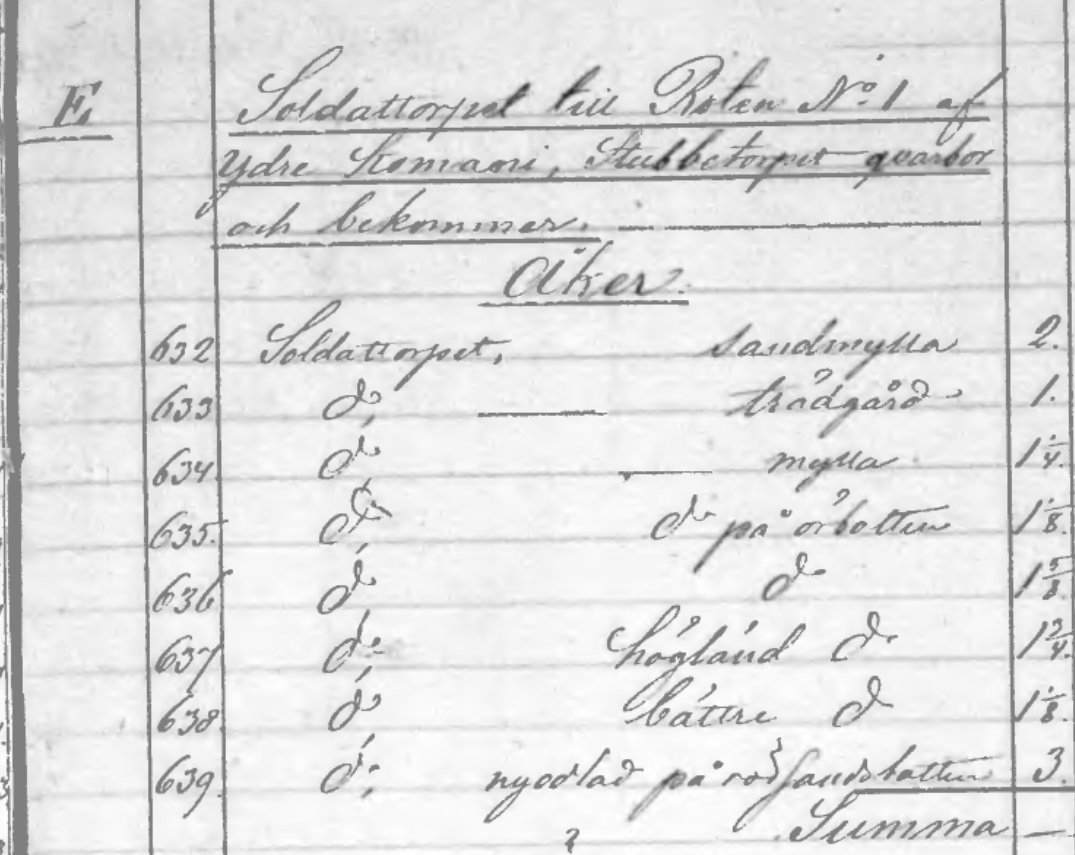 E.
Soldattorpet till Roten No. 1 af
Ydre Kompani, Stubbetorpet qvarbor
och bekommer. —
Åker.
632 Soldattorpet, sandmylla 2.
633 do, — trädgård 1.
634. do, — mylla 1 1/4.
635. do, do på örbotten 1 1/8.
636 do, do 1 5/8.
637 do, högländ do 1 3/4.
638 do, bättre do 1 1/8.
639. do, nyodlad på rödsandsbotten 3.
Summa —